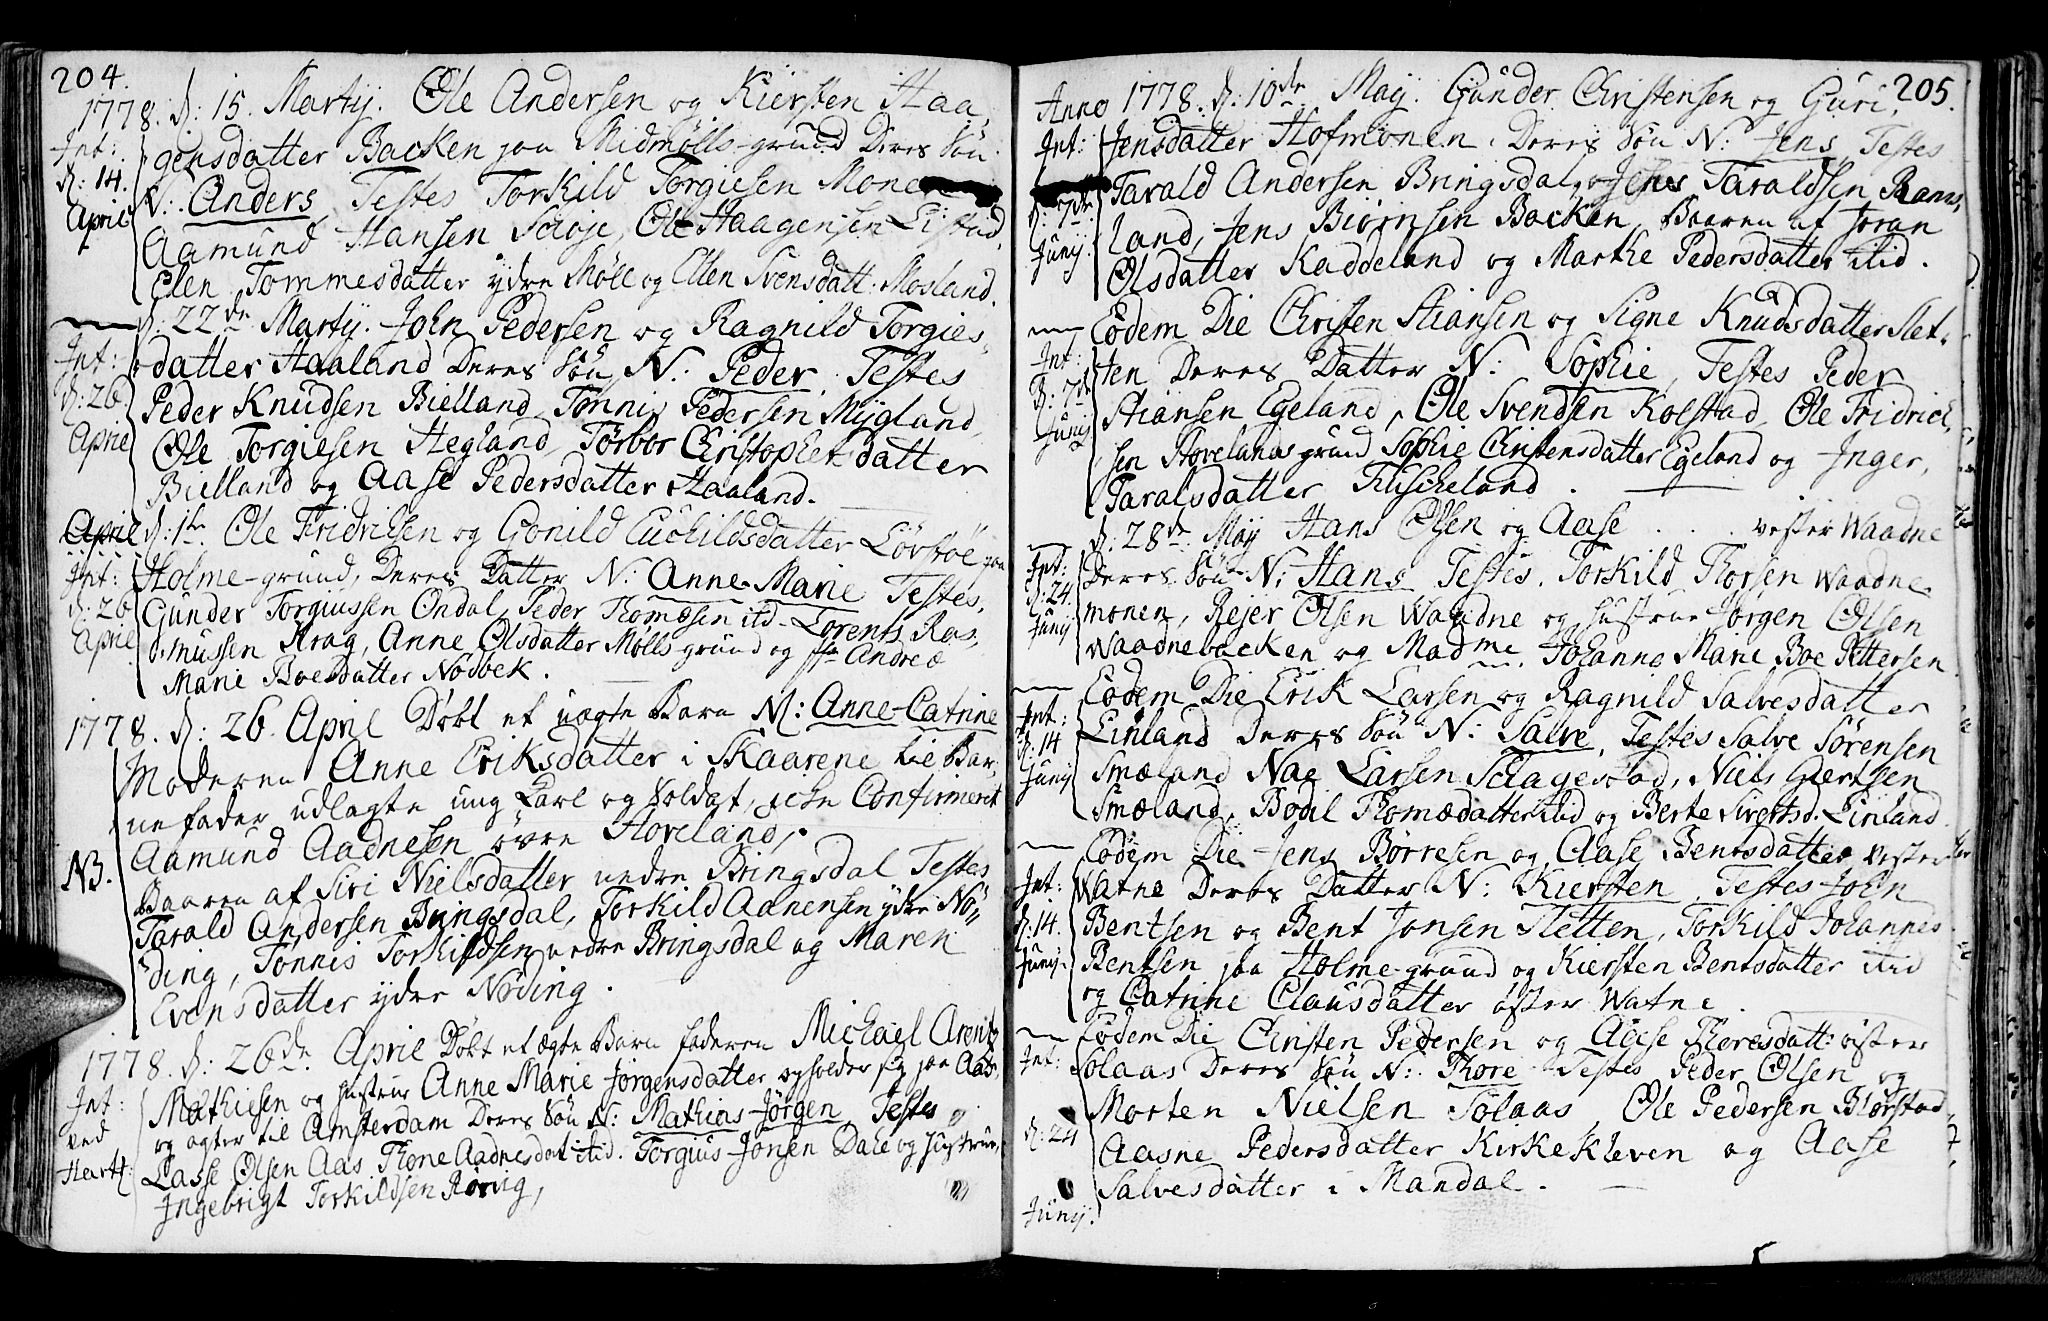 204.
1778. d: 15. Martij. Ole Andersen og Kiersten Haa,
Int: gensdatter Backen paa Midmølls-grund Deres Søn
d: 14. N: Anders, Testes Torkild Torgiesen Monen
April Aamund Hansen Schøje, Ole Haagensen Eistad,
Elen Tommesdatter ydre Møll og Ellen Svensdatt: Mosland.
d: 22de Martij. John Pedersen og Ragnild Torgies,
Int: datter Haaland Deres Søn N: Peder. Testes
d: 26 Peder Knudsen Bielland, Tønnis Pedersen Myglund,
April Ole Torgiesen Hegland, Tørbor Christophersdatter
Bielland og Aase Pedersdatter Haaland.
April d: 1te Ole Fridrilsen og Gonild Euchildsdatter Lövböe paa
Int: Holme-grund, Deres Datter N: Anne-Marie Testes,
d: 26 Gunder Torgiussen Ondal, Peder Thomæsen itd- Lorents Ras,
April mussen Krag, Anne Olsdatter Mölls grund og Andreæ
Marie Boesdatter Nodbek.
1778. d: 26 April Døbt et uægte Barn N: Anne-Catrine
Moderen Anne Eriksdatter i Skaarene til Bar,
nefader udlagte ung Karl og Soldat, icke Confirmerit
Aamund Aadnesen øvre Hoveland,
NB. Baaren af Siri Nielsdatter nedre Bringsdal Testes
Tarald Andersen Bringsdal, Torkild Aanensen ydre Nö,,
ding, Tønnis Torkildsen nedre Bringsdal og Maren
Evensdatter ydre Nöding.
1778. d: 26de April Døbt et ægte Barn faderen Michael Arentz
Int: Mathiesen og hustrue Anne Marie Jørgensdatter opholder sig paa Aas,
ved og agter til Amsterdam Deres Søn N: Mathias-Jörgen Testes
Hartt: Lasse Olsen Aas, Thone Aadnesdat: itid. Torgius Jonsen Dale og hustrue,
Ingebrigt Torkildsen Rörvig,
205.
Anno 1778. d: 10de Maij. Gunder Christensen og Guri,
Int: Jensdatter Hofmonen. Deres Søn N: Jens Testes
d: 7de Tarald Andersen Bringsdal, og Jens Taraldsen Rams,
Junij. land, Jens Biörnsen Backen, Baaren af Joran
Olsdatter Kaddeland og Marthe Pedersdatter itid.
Eodem Die Christen Stiansen og Signe Knudsdatter Slet,
Int: ten Deres Datter N: Sophie, Testes Peder
d: 7de Stiansen Egeland, Ole Svendsen Kolstad, Ole Fridrich,
Junij sen Hovelands grund Sophie Christensdatter Egeland og Inger,
Taralsdatter Fuscheland.
d: 28de Maij Hans Olsen og Aase . . . vester Waadne
Int: Deres Søn N: Hans Testes. Torkild Thorsen Waadne,
d: 24. monen, Rejer Olsen Waadne og hustrue Jørgen Olsen
Junij Waadnebacken og Madme Johanne Marie Boe Pettersen
Eodem Die Erik Larsen og Ragnild Salvesdatter
Int: Einland Deres Søn N: Salve, Testes Salve Sörensen
d: 14 Smæland Nae Larsen Schagestad, Niels Giertsen
Junij Smæland, Bodil Thomædatter itid og Berte Sivertsd. Einland.
Eodem Die Jens Børresen og Aase Bentsdatter vester
Int: Watne Deres Datter N: Kiersten Testes John
d: 14. Bentsen og Bent Jonsen Sletten, Torkild Johannes
Junij. Bentsen paa Holme-grund og Kiersten Bentsdatter itid
og Catrine Clausdatter öster Watne.
Eodem Die Christen Pedersen og Aase Thoresdatt: öster
Int: Solaas Deres Søn N: Thore Testes Peder Olsen og
Morten Nielsen Solaas, Ole Pedersen Biørstad,
d: 24 Aasne Pedersdatter Kirkekleven og Aase
Salvesdatter i Mandal.
Junij.